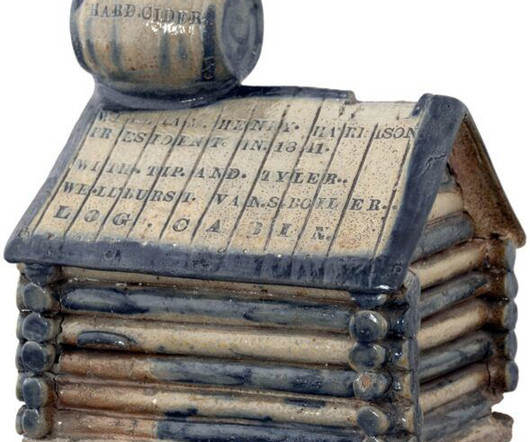 HARD.CIDER
WILLIAM. HENRY. HARRISON
PRESIDENT. IN. 1841.
WITH. TIP. AND. TYLER..
WE.LL.BURST. VAN.S.BOILER..
LOG. CABIN.